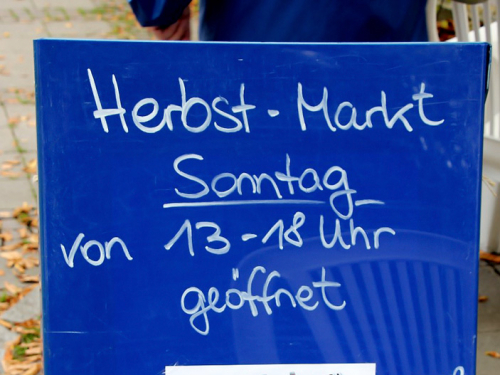 Herbst-Markt
Sonntag
von 13-18 Uhr
geöffnet